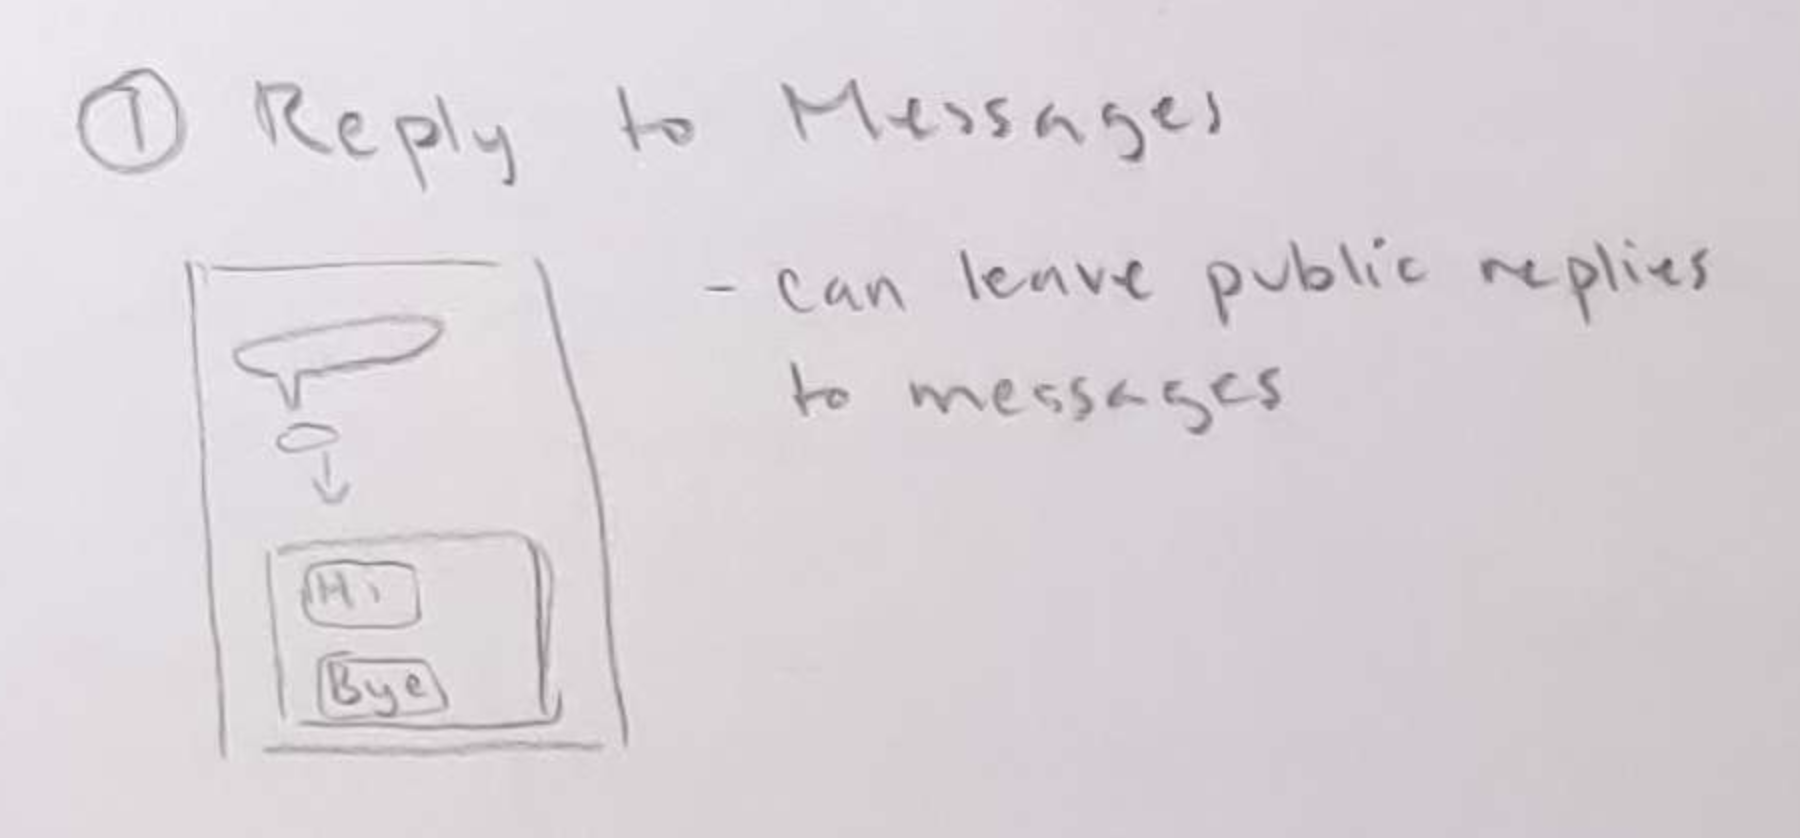 ① Reply to Messages
- can leave public replies
to messages
Hi
Bye